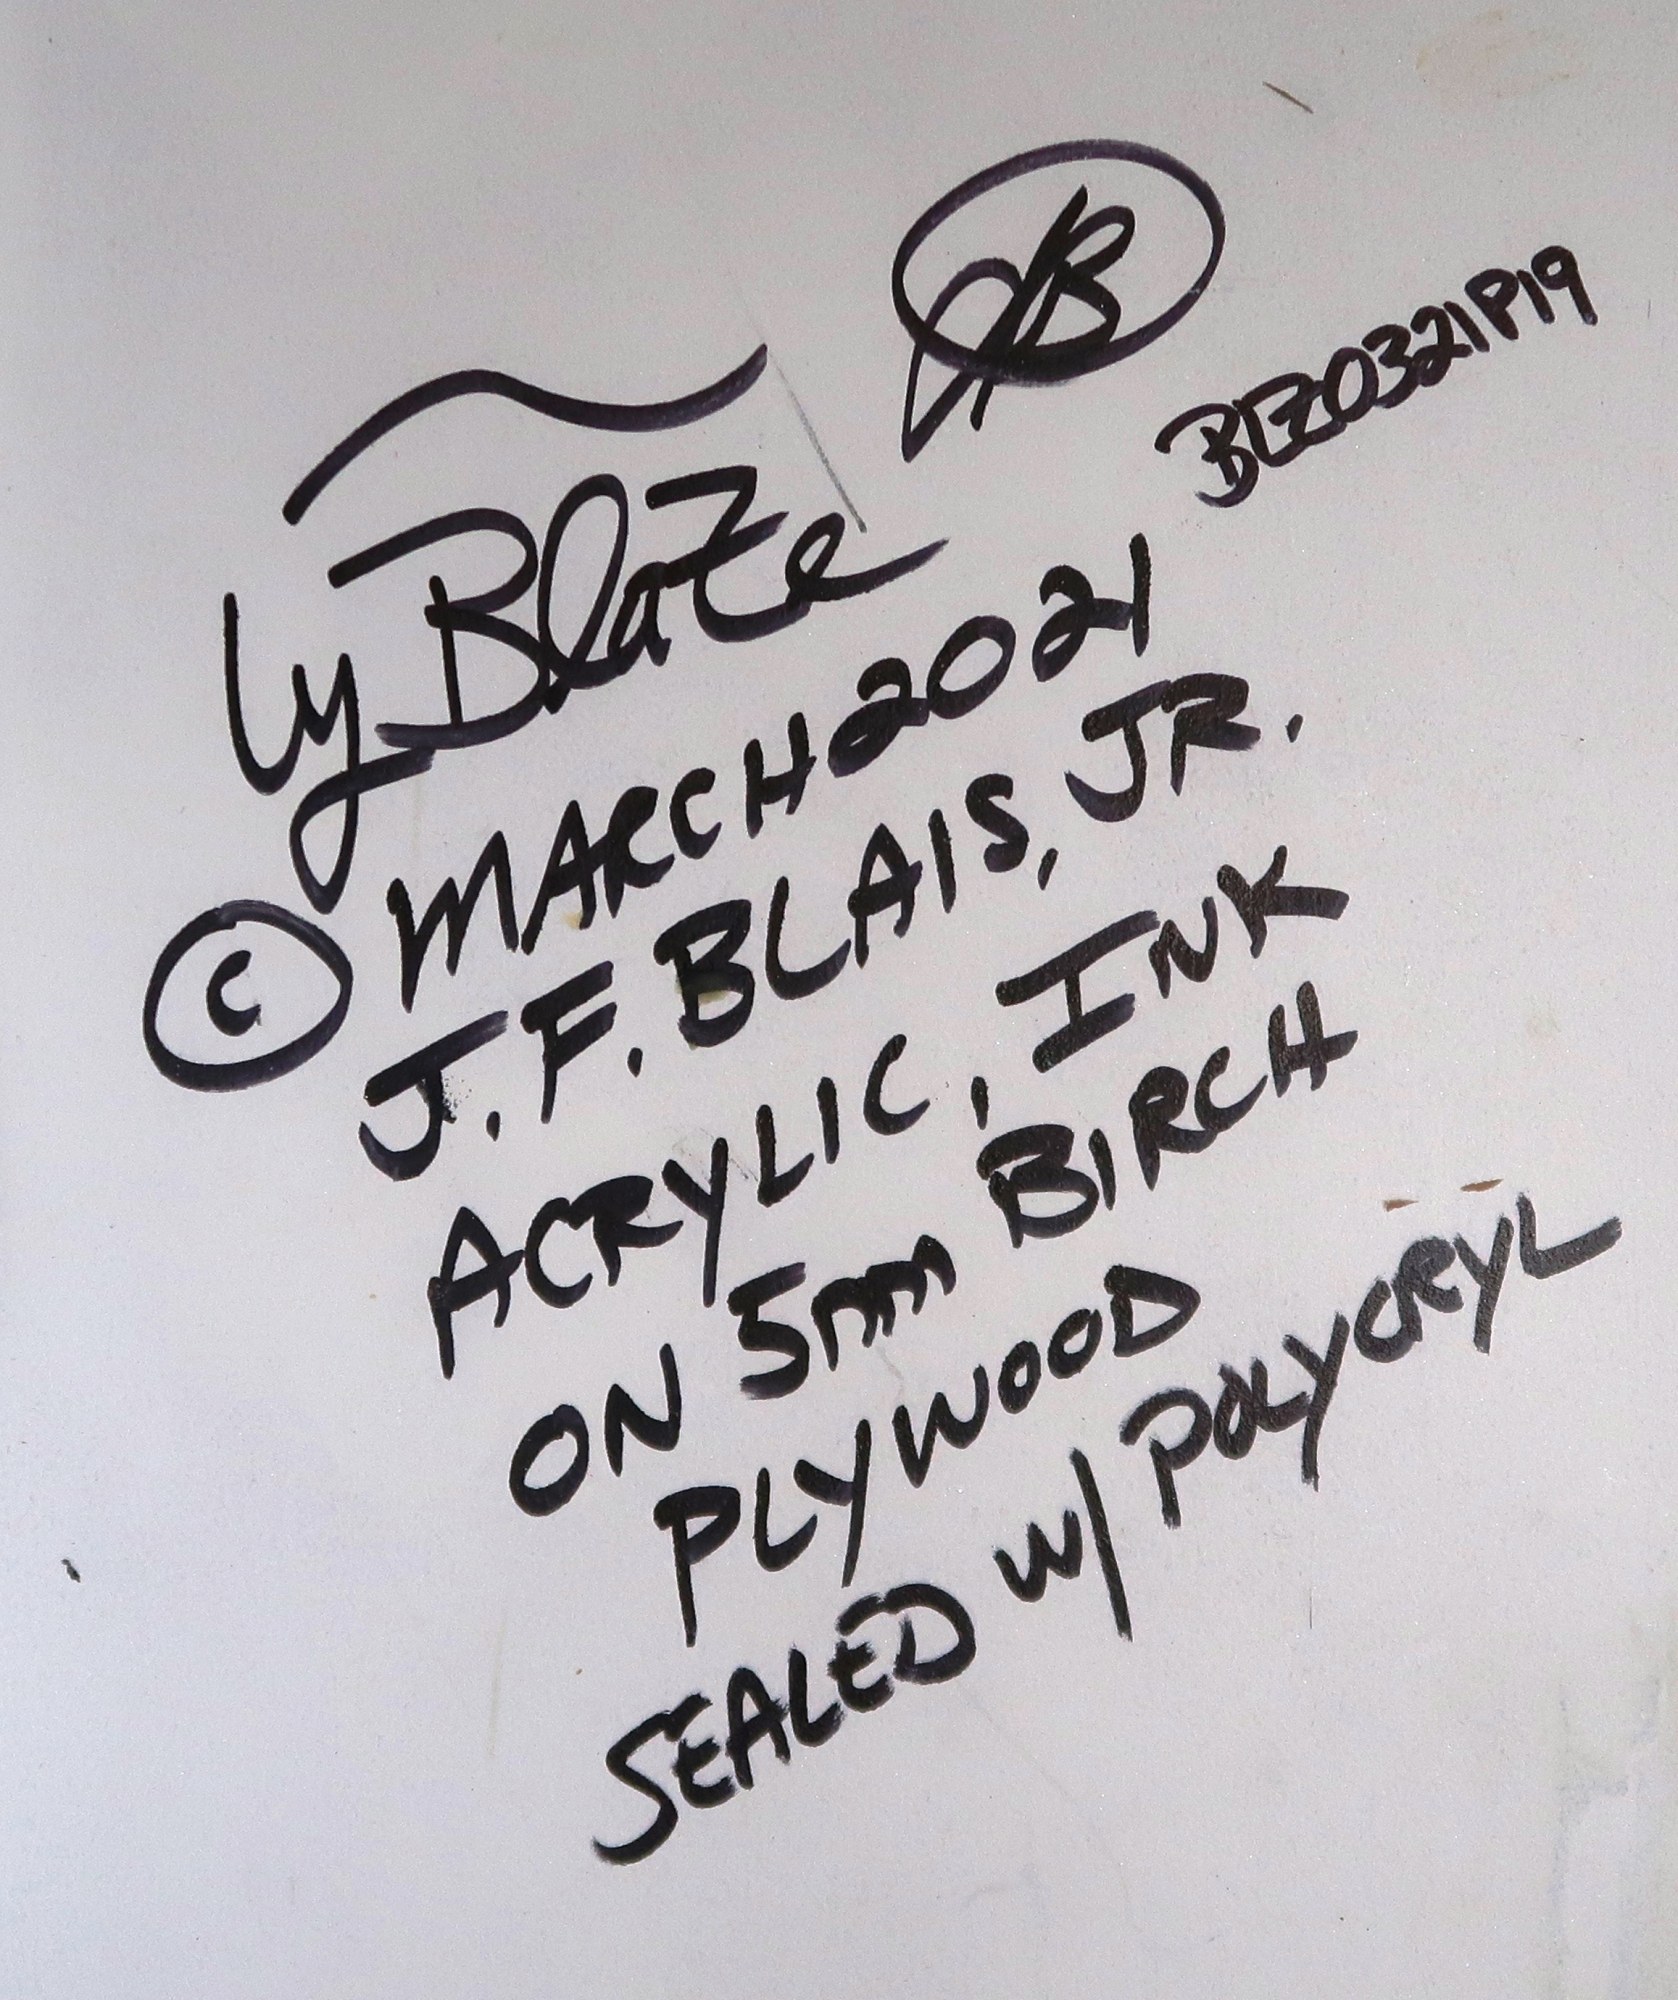 JB
BLZ0321P19
Ly BlaZe
© MARCH 2021
J.F. BLAIS, JR.
ACRYLIC, INK
ON 5mm BIRCH
PLYWOOD
SEALED W/ POLYCRYL